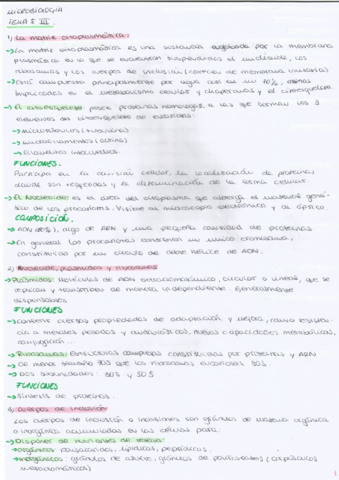 MICROBIOLOGIA
TEMA 5 III
1) La matriz citoplasmática:
→ La matriz citoplasmática es una sustancia por la membrana
plasmática en la que se encuentran suspendidos el nucleoide, los
ribosomas y los cuerpos de inclusión (carecen de membrana unitaria).
→ Está compuesta principalmente por agua con en un 70%,
implicadas en el metabolismo celular y chaperonas y el citoesqueleto.
→ El citoesqueleto: posee proteínas homólogas a las que forman los 3
elementos del citoesqueleto de eucariotas:
→ microtúbulos (tubulina)
→ microfilamentos (actina)
→ filamentos intermedios.
FUNCIONES.
Participa en la división celular, la localización de proteínas
donde son requeridas y la determinación de la forma celular.
→ El Nucleoide: es el área del citoplasma que alberga el material gené-
tico de los procariotas. Visible al microscopio electrónico y al óptico.
COMPOSICIÓN.
→ ADN (60%), algo de ARN y una pequeña cantidad de proteínas.
→ En general los procariotas contienen un único cromosoma,
constituido por un círculo de doble hélice de ADN.
2) Nucleoide, plásmidos y ribosomas
→ Plásmidos: Moléculas de ADN extracromosómico, circular o lineal, que se
replican y transmiten de manera independiente. Generalmente
dispensables.
FUNCIONES
→ Confiere ciertas propiedades de adaptación y mejora, como resisten-
cia a metales pesados y antibióticos, nuevas capacidades metabólicas,
conjugación...
→ Ribosomas: Estructuras complejas constituidas por proteínas y ARN
→ De menor tamaño 70S que los ribosomas eucariotas 80S.
→ Dos subunidades: 30S y 50S
FUNCIONES
→ Síntesis de proteínas.
Cuerpos de inclusión
Los cuerpos de inclusión o inclusiones son gránulos de material orgánica
o inorgánica acumulados en las células para:
→ Disponer de nutrientes de reserva:
→ orgánicos: polisacáridos, lipídicas, peptídicas,
→ Inorgánicos: gránulos de azufre, gránulos de polifosfatos (corpúsculos
metacromáticos)
1